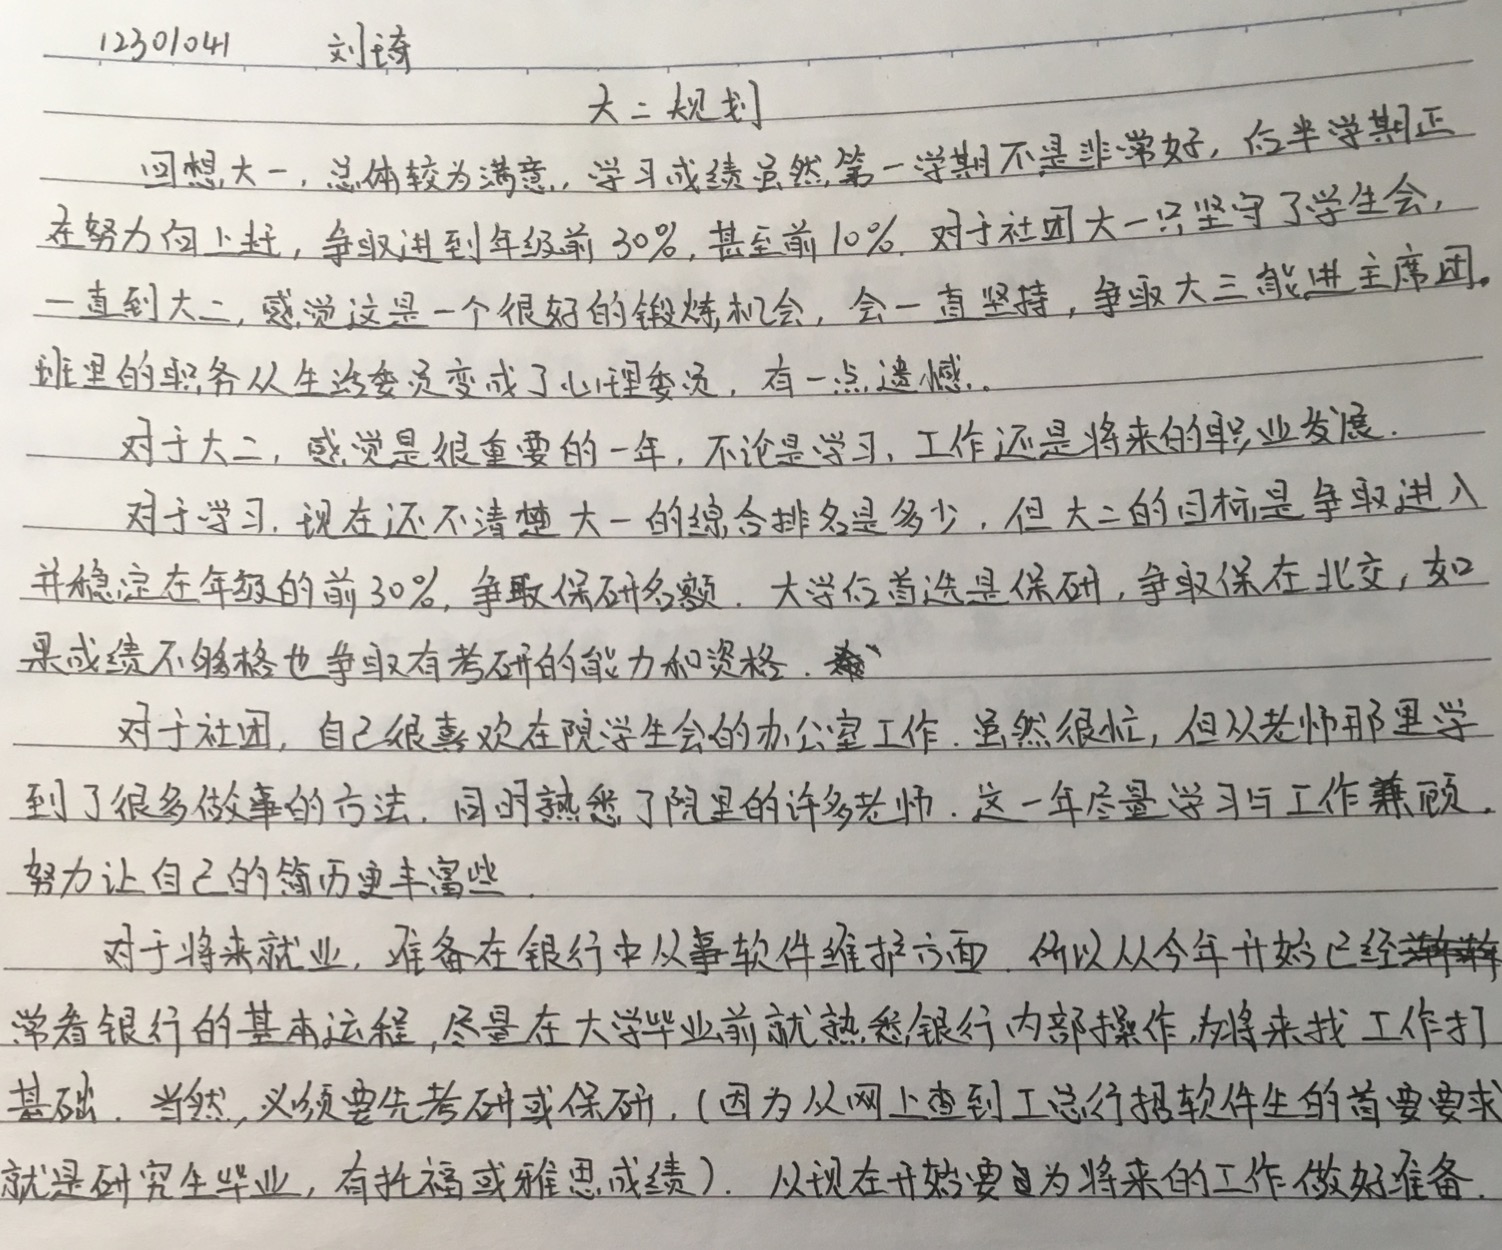 12301041 刘琦
大二规划
回想大一，总体较为满意，学习成绩虽然第一学期不是非常好，后半学期正
在努力向上赶，争取进到年级前30%，甚至前10%。对于社团大一只坚守了学生会，
一直到大二，感觉这是一个很好的锻炼机会，会一直坚持，争取大三能进主席团。
班里的职务从生活委员变成了心理委员，有一点遗憾。
对于大二，感觉是很重要的一年，不论是学习、工作还是将来的职业发展.
对于学习，现在还不清楚大一的综合排名是多少，但大二的目标是争取进入
并稳定在年级的前30%，争取保研名额. 大学后首选是保研，争取保在北交，如
果成绩不够格也争取有考研的能力和资格.
对于社团，自己很喜欢在院学生会的办公室工作. 虽然很忙，但从老师那里学
到了很多做事的方法. 同时熟悉了院里的许多老师. 这一年尽量学习与工作兼顾.
努力让自己的简历更丰富些.
对于将来就业，准备在银行中从事软件维护方面. 所以从今年开始已经
常看银行的基本运程，尽量在大学毕业前就熟悉银行内部操作，为将来找工作打
基础. 当然，必须要先考研或保研，(因为从网上查到工总行招软件生的首要要求
就是研究生毕业，有托福或雅思成绩). 从现在开始要为将来的工作做好准备.